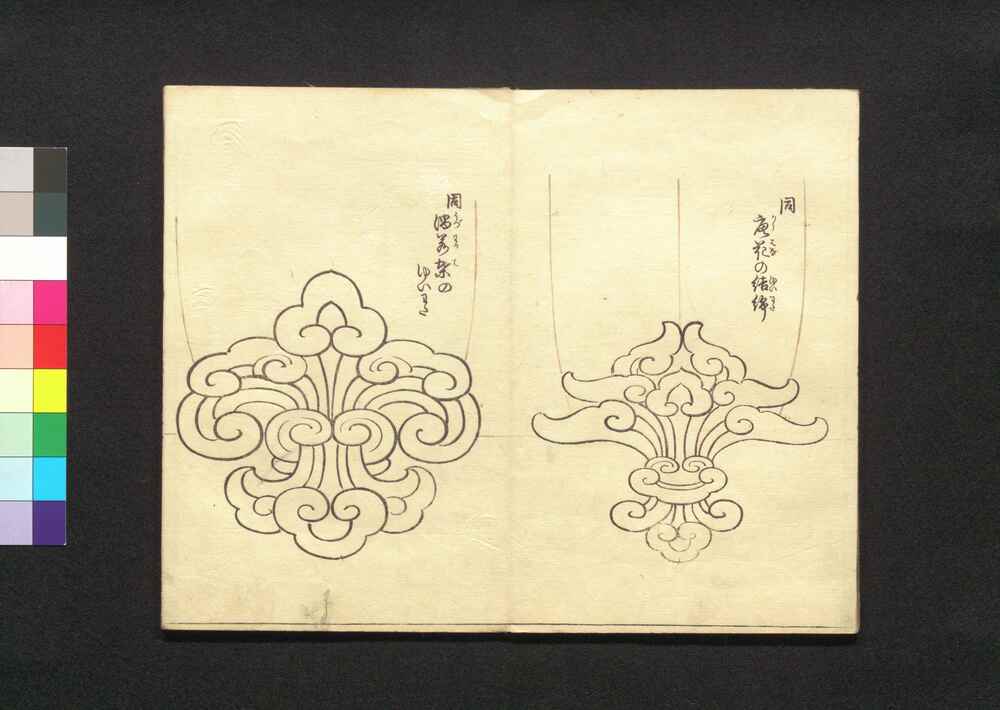 同
唐花の結綿
同
渦若葉の
ゆいわた